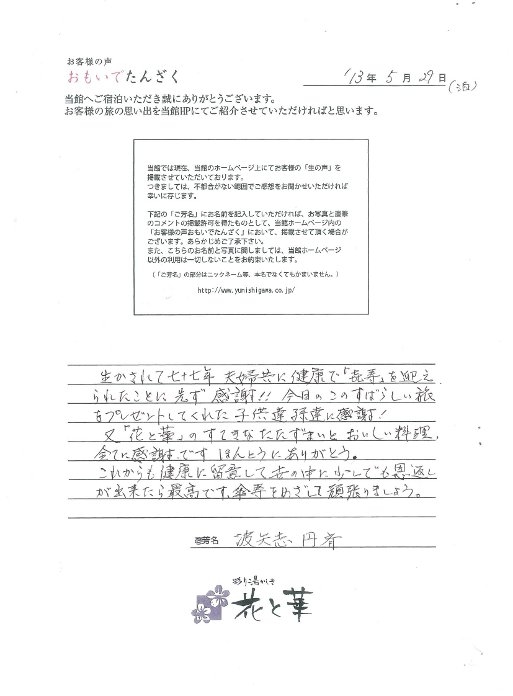 お客様の声
おもいでたんざく
'13年 5月 29日(泊)
当館へご宿泊いただき誠にありがとうございます。
お客様の旅の思い出を当館HPにてご紹介させていただければと思います。
当館では現在、当館のホームページ上にてお客様の「生の声」を
掲載させていただいております。
つきましては、不都合がない範囲でご感想をお聞かせいただければ
幸いに存じます。
下記の「ご芳名」にお名前を記入していただければ、お写真と直筆
のコメントの掲載許可を得たものとして、当館ホームページ内の
「お客様の声おもいでたんざく」において、掲載させて頂く場合が
ございます。あらかじめご了承下さい。
また、こちらのお名前と写真に関しましては、当館ホームページ
以外の利用は一切しないことをお約束いたします。
(「ご芳名」の部分はニックネーム等、本名でなくてもかまいません。)
http://www.yunishigawa.co.jp/
生かされて七十七年 夫婦共に健康で「㐂寿」を迎え
られたことに先ず感謝!! 今日のこのすばらしい旅
をプレゼントしてくれた子供達孫達に感謝!
又「花と華」のすてきなたたずまいとおいしい料理、
全てに感謝です ほんとうにありがとう。
これからも健康に留意して世の中に少しでも恩返し
が出来たら最高です、傘寿をめざして頑張りましょう。
ご芳名 波矢志 円斉
花と華